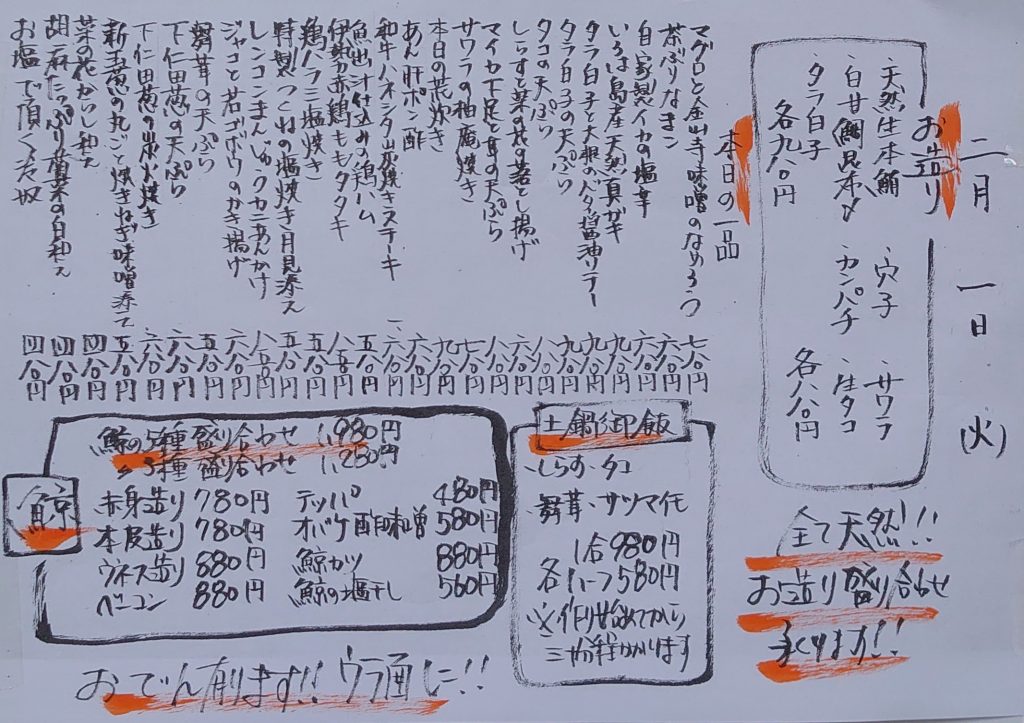 二月 一日 (火)
お造り
・天然生本鮪 ・穴子 ・サワラ
・白甘鯛昆布〆 ・カンパチ ・生タコ
・タラ白子
各九八〇円 各八八〇円
全て天然!!
お造り盛り合せ
承ります!!
本日の一品
マグロと金山寺味噌のなめろう 七八〇円
茶ぶりなまこ 六八〇円
自家製イカの塩辛 六八〇円
いろは島産天然真ガキ
タラ白子と大根のバター醤油ソテー
タラ白子の天ぷら
タコの天ぷら
しらすと菜の花の落とし揚げ
マイカ下足と芽の天ぷら
サワラの柚庵焼き
本日の荒炊き
あん肝ポン酢
和牛ハネシタ炭焼きステーキ
魚出汁仕込みの鶏ハム
伊勢赤鶏ももタタキ
鶏ハラミ塩焼き
特製つくねの塩焼き月見添え
レンコンまんじゅうカニあんかけ
ジャコと若ゴボウのかき揚げ
舞茸の天ぷら
下仁田葱の天ぷら
下仁田葱の炭火焼き
新玉葱の丸ごと焼きねぎ味噌添え
菜の花からし和え 四八〇円
胡麻たっぷり春菊の白和え 四八〇円
お塩で頂く冷奴 四八〇円
土鍋御飯
・しらす・タコ
・舞茸・サツマイモ
1合980円
各ハーフ580円
※作り始めてから
三十分程かかります
鯨
鯨の5種盛り合わせ 1,980円
〃3種盛り合わせ 1,280円
赤身造り 780円 テッパ 480円
本皮造り 780円 オバケ酢味噌 580円
ウネス造り 880円 鯨カツ 880円
ベーコン 880円 鯨の塩干し 560円
おでん有ります!! ウラ面に!!